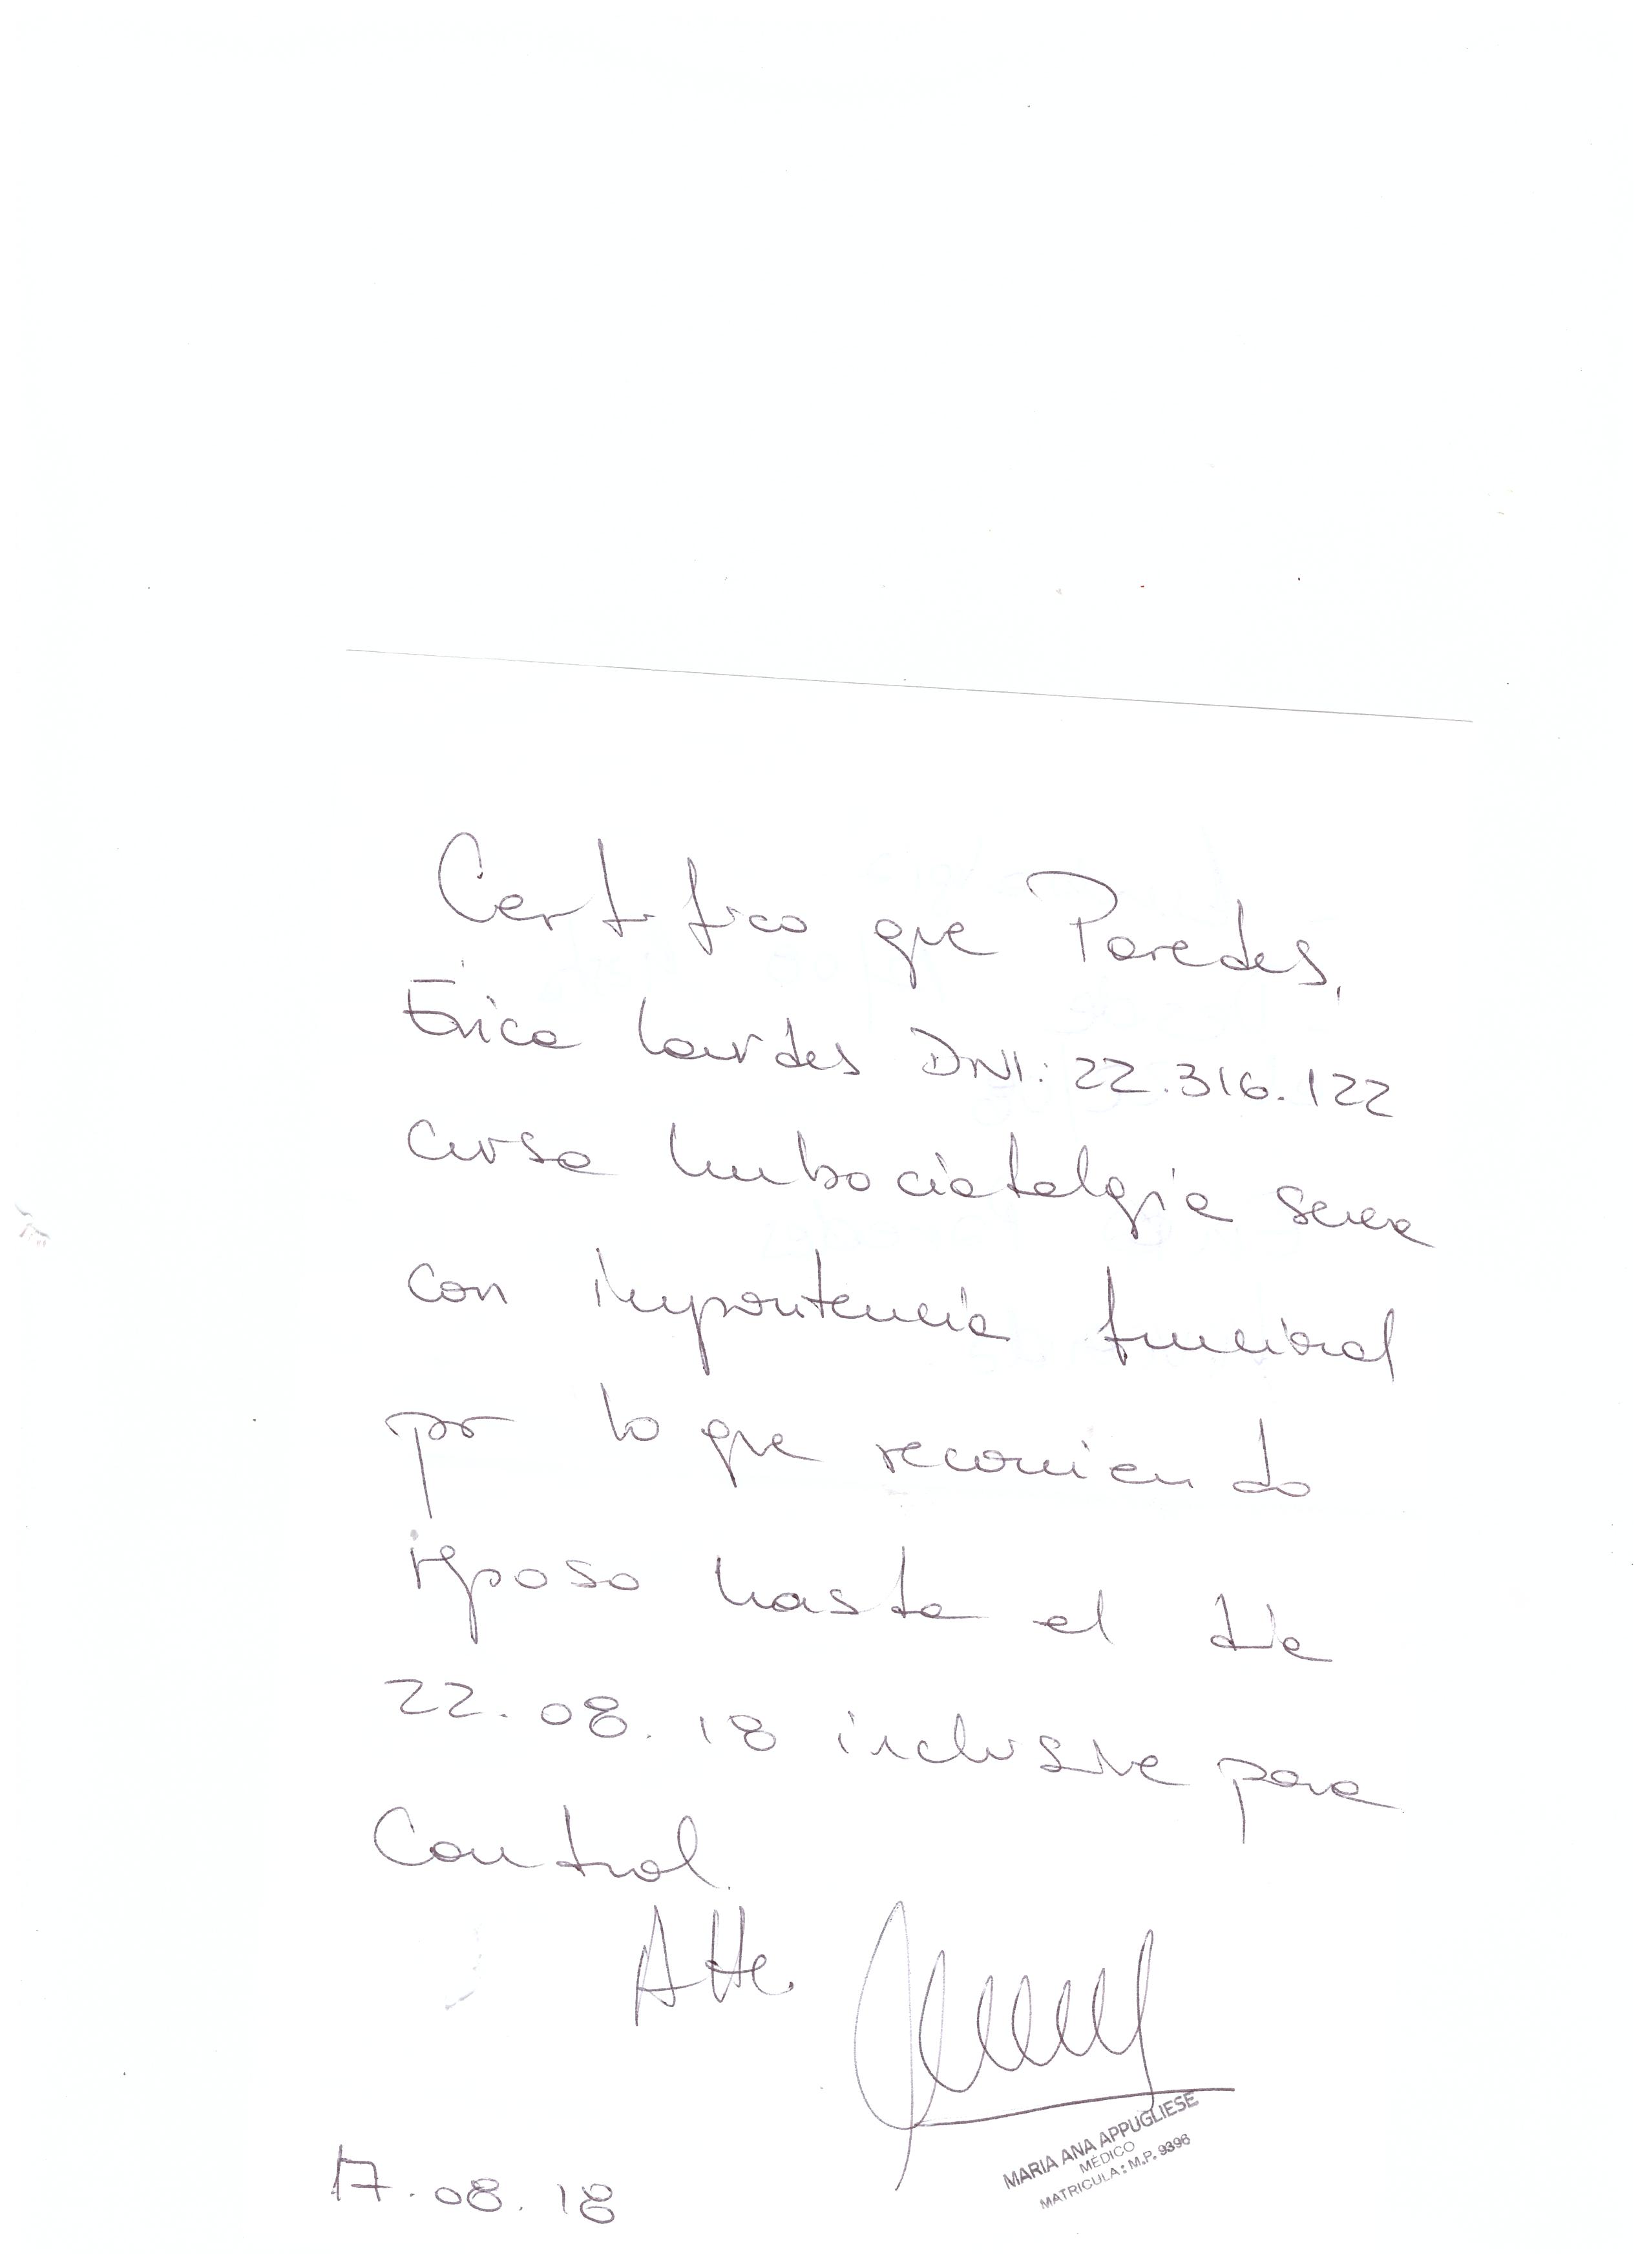 Certifico que Paredes,
Erica Lourdes DNI: 22.316.122
cursa lumbociatalgia severa
con impontencia funcional
por lo que recomiendo
reposo hasta el dia
22.08.18 inclusive para
Control.
Atte.
MARIA ANA APPUGLIESE
MÉDICO
MATRICULA: M.P. 9396
17.08.18